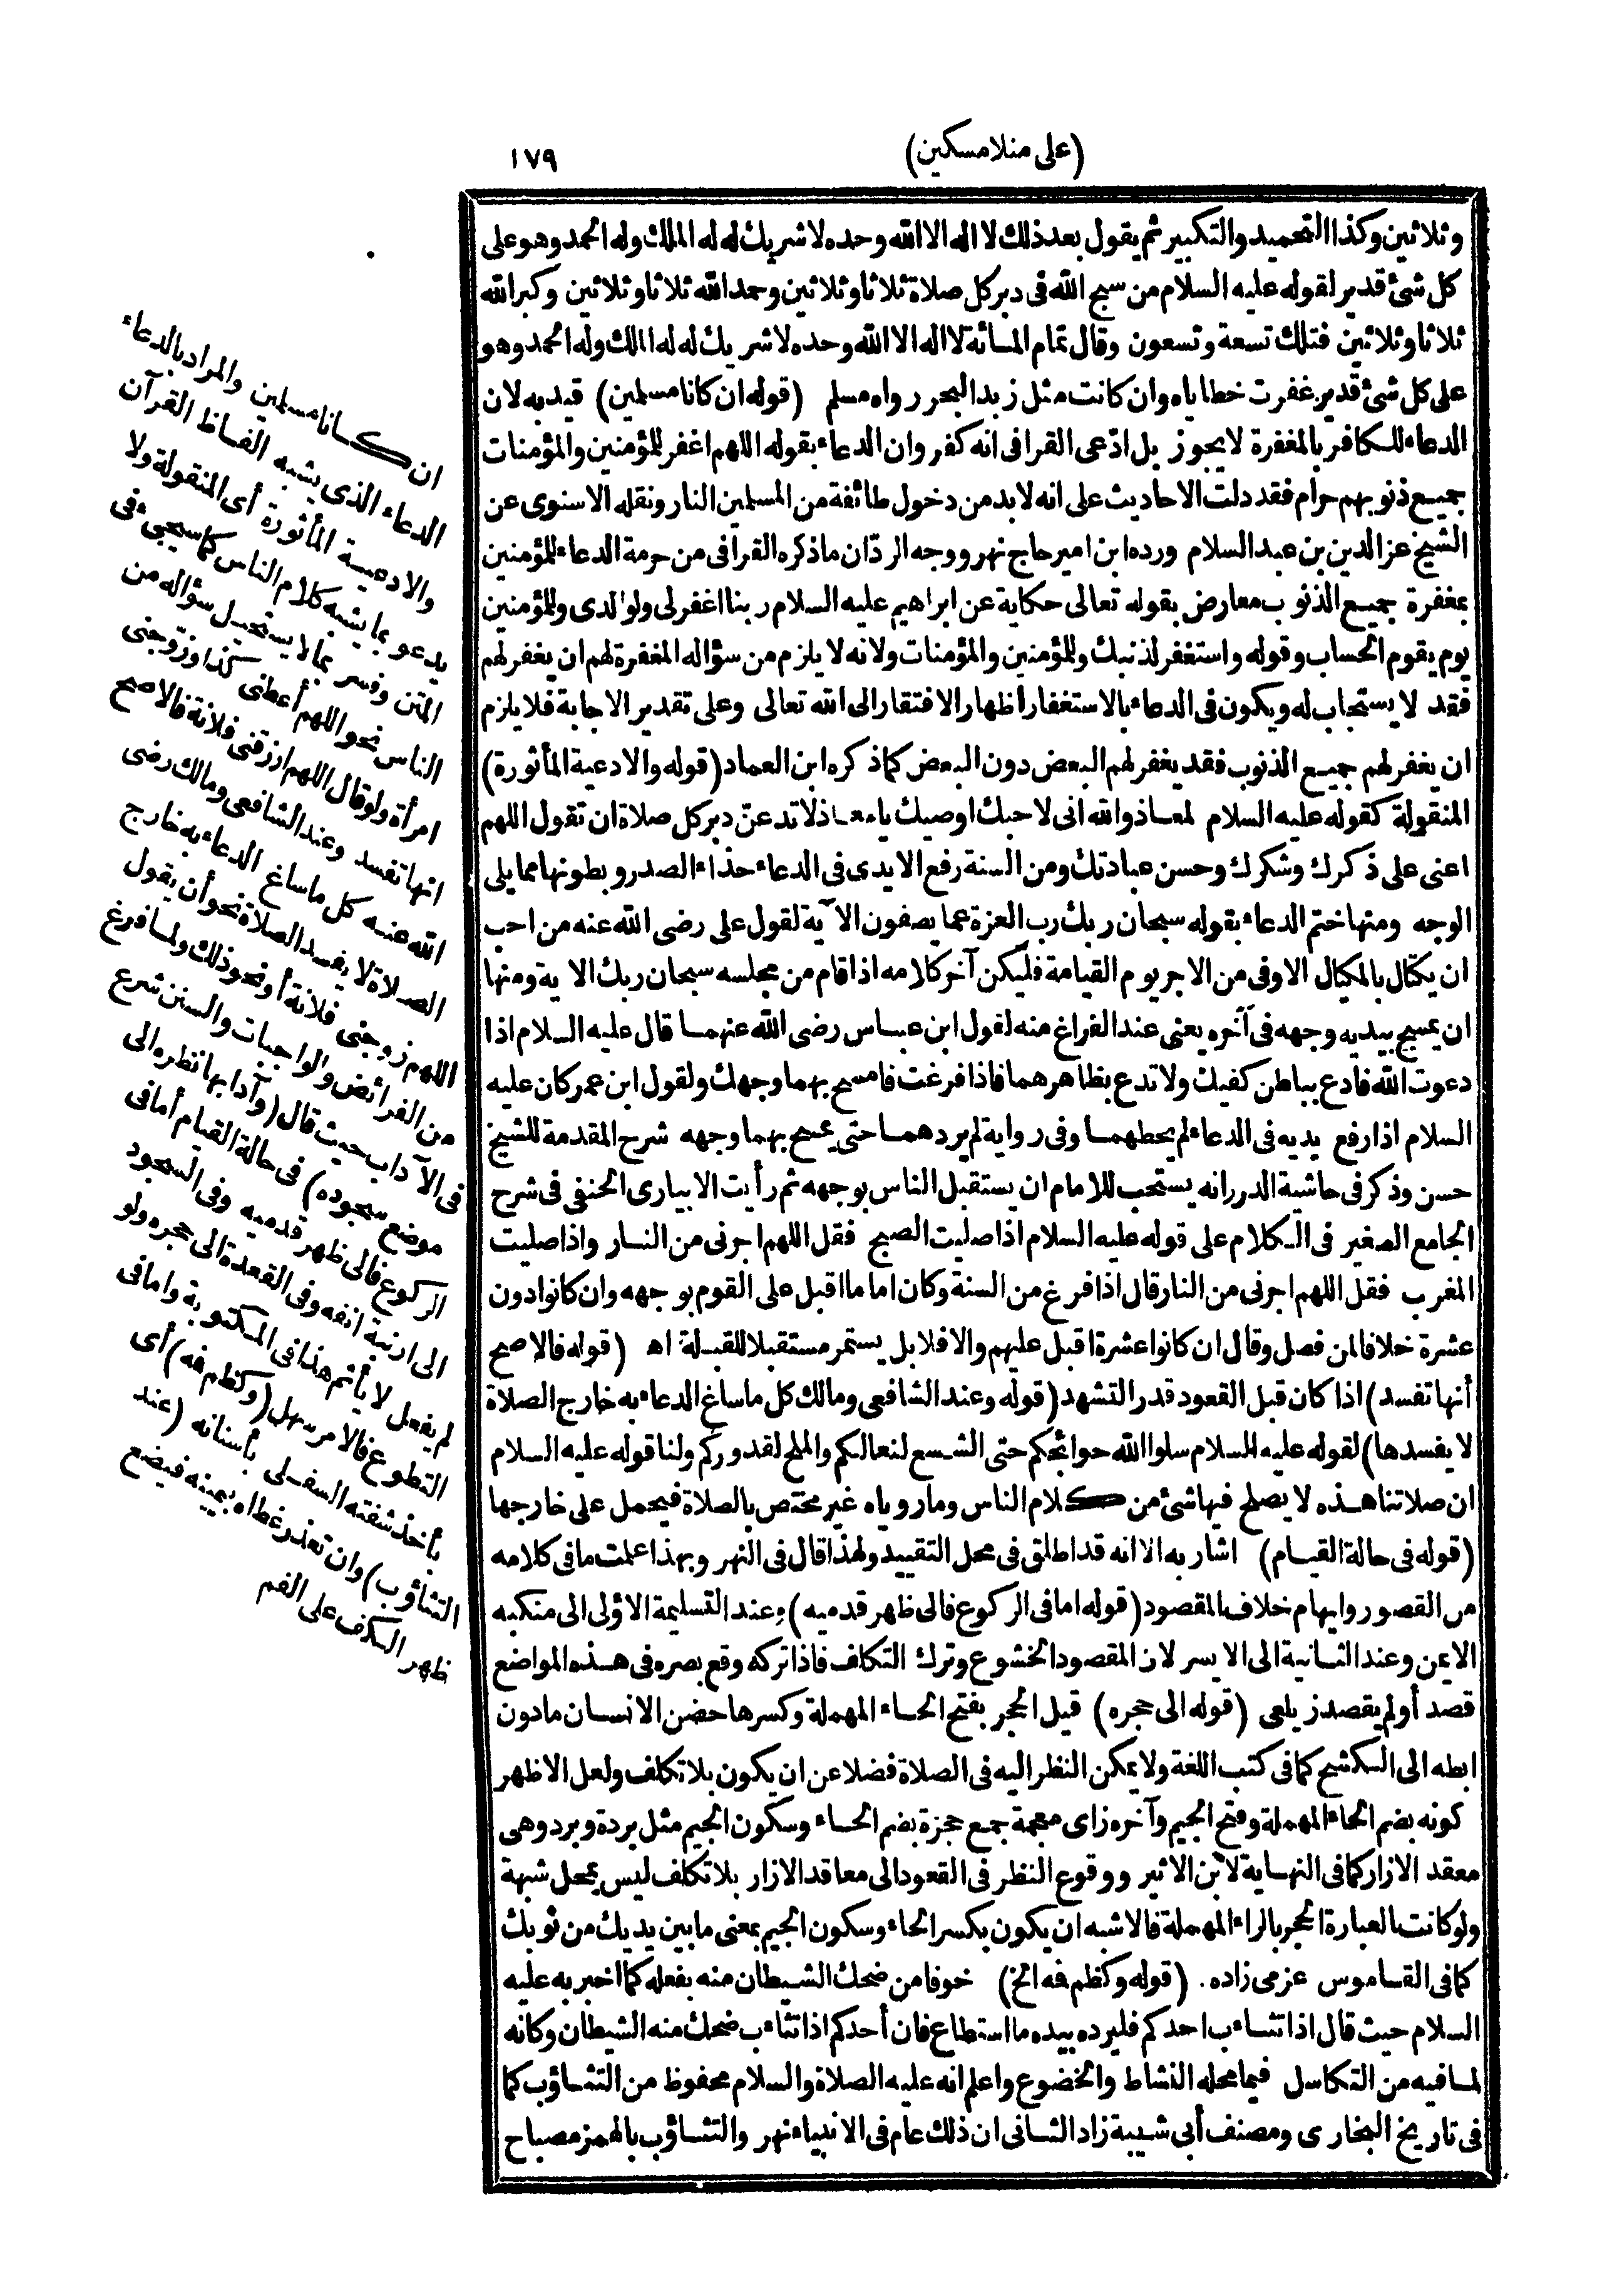 (على منلا مسكين)
١٧٩
وثلاثين وكذا التحميد والتكبير ثم يقول بعد ذلك لا اله الا الله وحده لا شريك له له الملك وله الحمد وهو على
كل شئ قدير لقوله عليه السلام من سبح الله فى دبر كل صلاة ثلاثا وثلاثين وحمد الله ثلاثا وثلاثين وكبر الله
ثلاثا وثلاثين فتلك تسعة وتسعون وقال تمام المائة لا اله الا الله وحده لا شريك له له الملك وله الحمد وهو
على كل شئ قدير غفرت خطاياه وان كانت مثل زبد البحر رواه مسلم (قوله ان كانا مسلمين) قيد به لان
الدعاء للكافر بالمغفرة لا يجوز بل ادّعى القرافى انه كفر وان الدعاء بقوله اللهم اغفر للمؤمنين والمؤمنات
جميع ذنوبهم حرام فقد دلت الاحاديث على انه لا بد من دخول طائفة من المسلمين النار ونقله الاسنوى عن
الشيخ عز الدين بن عبد السلام ورده ابن امير حاج نهر ووجه الردّ ان ما ذكره القرافى من حرمة الدعاء للمؤمنين
بمغفرة جميع الذنوب معارض بقوله تعالى حكاية عن ابراهيم عليه السلام ربنا اغفر لى ولوالدى وللمؤمنين
يوم يقوم الحساب وقوله واستغفر لذنبك وللمؤمنين والمؤمنات ولانه لا يلزم من سؤاله المغفرة لهم ان يغفر لهم
فقد لا يستجاب له ويكون فى الدعاء بالاستغفار اظهار الافتقار الى الله تعالى وعلى تقدير الاجابة فلا يلزم
ان يغفر لهم جميع الذنوب فقد يغفر لهم البعض دون البعض كما ذكره ابن العماد (قوله والادعية المأثورة)
المنقولة كقوله عليه السلام لمعاذ والله انى لاحبك اوصيك يا معاذ لا تدعنّ دبر كل صلاة ان تقول اللهم
اعنى على ذكرك وشكرك وحسن عبادتك ومن السنة رفع الايدى فى الدعاء حذاء الصدر وبطونها مما يلى
الوجه ومنها ختم الدعاء بقوله سبحان ربك رب العزة عما يصفون الآية لقول على رضى الله عنه من احب
ان يكتال بالمكيال الاوفى من الاجر يوم القيامة فليكن آخر كلامه اذا قام من مجلسه سبحان ربك الاية ومنها
ان يمسح بيديه وجهه فى آخره يعنى عند الفراغ منه لقول ابن عباس رضى الله عنهما قال عليه السلام اذا
دعوت الله فادع بباطن كفيك ولا تدع بظاهرهما فاذا فرغت فامسح بهما وجهك ولقول ابن عمر كان عليه
السلام اذا رفع يديه فى الدعاء لم يحطهما وفى رواية لم يردهما حتى يمسح بهما وجهه شرح المقدمة للشيخ
حسن وذكر فى حاشية الدرر انه يستحب للامام ان يستقبل الناس بوجهه ثم رأيت الابيارى الحنفى فى شرح
الجامع الصغير فى الكلام على قوله عليه السلام اذا صليت الصبح فقل اللهم اجرنى من النار واذا صليت
المغرب فقل اللهم اجرنى من النار قال اذا فرغ من السنة وكان اماما اقبل على القوم بوجهه وان كانوا دون
عشرة خلافا لمن فصل وقال ان كانوا عشرة اقبل عليهم والا فلا بل يستمر مستقبلا للقبلة اه (قوله فالاصح
أنها تفسد) اذا كان قبل القعود قدر التشهد (قوله وعند الشافعى ومالك كل ما ساغ الدعاء به خارج الصلاة
لا يفسدها) لقوله عليه السلام سلوا الله حوائجكم حتى الشسع لنعالكم والملح لقدوركم ولنا قوله عليه السلام
ان صلاتنا هذه لا يصلح فيها شئ من كلام الناس وما روياه غير مختص بالصلاة فيحمل على خارجها
(قوله فى حالة القيام) اشار به الا انه قد اطلق فى محل التقييد ولهذا قال فى النهر وبهذا علمت ما فى كلامه
من القصور وايهام خلاف المقصود (قوله اما فى الركوع فالى ظهر قدميه) وعند التسليمة الاولى الى منكبه
الايمن وعند الثانية الى الايسر لان المقصود الخشوع وترك التكلف فاذا تركه وقع بصره فى هذه المواضع
قصد أو لم يقصد زيلعى (قوله الى حجره) قيل الحجر بفتح الحاء المهملة وكسرها حضن الانسان ما دون
ابطه الى الكشح كما فى كتب اللغة ولا يمكن النظر اليه فى الصلاة فضلا عن ان يكون بلا تكلف ولعل الاظهر
كونه بضم الحاء المهملة وفتح الجيم وآخره زاى معجمة جمع حجزة بضم الحاء وسكون الجيم مثل بردة وبرد وهى
معقد الازار كما فى النهاية لابن الاثير ووقوع النظر فى القعود الى معاقد الازار بلا تكلف ليس بمحل شبهة
ولو كانت العبارة الحجر بالراء المهملة فالاشبه ان يكون بكسر الحاء وسكون الجيم بمعنى ما بين يديك من ثوبك
كما فى القاموس عزمى زاده. (قوله وكظم فه الخ) خوفا من ضحك الشيطان منه بفعله كما اخبر به عليه
السلام حيث قال اذا تثاءب احدكم فليرده بيده ما استطاع فان أحدكم اذا تثاءب ضحك منه الشيطان وكأنه
لما فيه من التكاسل فيما محله النشاط والخضوع واعلم انه عليه الصلاة والسلام محفوظ من التثاؤب كما
فى تاريخ البخارى ومصنف أبى شيبة زاد الثانى ان ذلك عام فى الانبياء نهر والتثاؤب بالهمز مصباح
ان كانا مسلمين والمراد بالدعاء
الدعاء الذى يشبه الفاظ القرآن
والادعية المأثورة أى المنقولة ولا
يدعو بما يشبه كلام الناس كما سيجىء فى
المتن وفسر بما لا يستحيل سؤاله من
الناس نحو اللهم أعطنى كذا وزوّجنى
امرأة ولو قال اللهم ارزقنى فلانة فالاصح
انها تفسد وعند الشافعى ومالك رضى
الله عنه كل ما ساغ الدعاء به خارج
الصلاة لا يفسد الصلاة نحو أن يقول
اللهم زوجنى فلانة أو نحو ذلك ولما فرغ
من الفرائض والواجبات والسنن شرع
فى الآداب حيث قال (وآدابها نظره الى
موضع سجوده) فى حالة القيام أما فى
الركوع فالى ظهر قدميه وفى السجود
الى ارنبة انفه وفى القعدة الى حجره ولو
لم يفعل لا يأثم هذا فى المكتوبة واما فى
التطوع فالامر سهل (وكظم فه) أى
يأخذ شفته السفلى بأسنانه (عند
التثاؤب) وان تعذر غطاه بيمينه فيضع
ظهر الكف على الفم